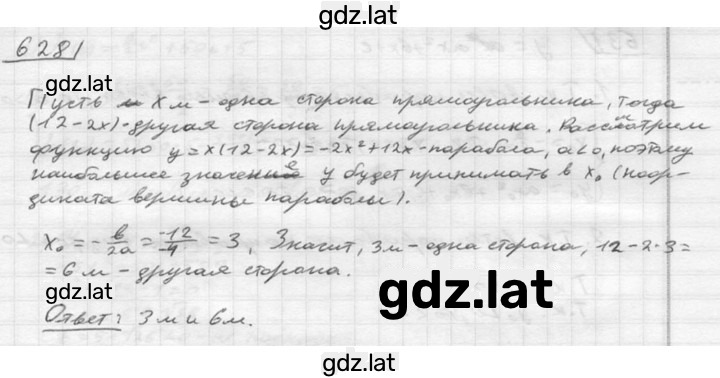 gdz.lat
628)
gdz.lat
Пусть x м - одна сторона прямоугольника, тогда
(12-2x) - другая сторона прямоугольника. Рассмотрим
функцию y = x(12-2x) = -2x²+12x - парабола, a<0, поэтому
наибольшее значение y будет принимать в x₀ (коор-
дината вершины параболы).
x₀ = -b/2a = -12/-4 = 3. Значит, 3м - одна сторона, 12-2·3=
= 6 м - другая сторона.
gdz.lat
gdz.lat
Ответ: 3м и 6м.
gdz.lat